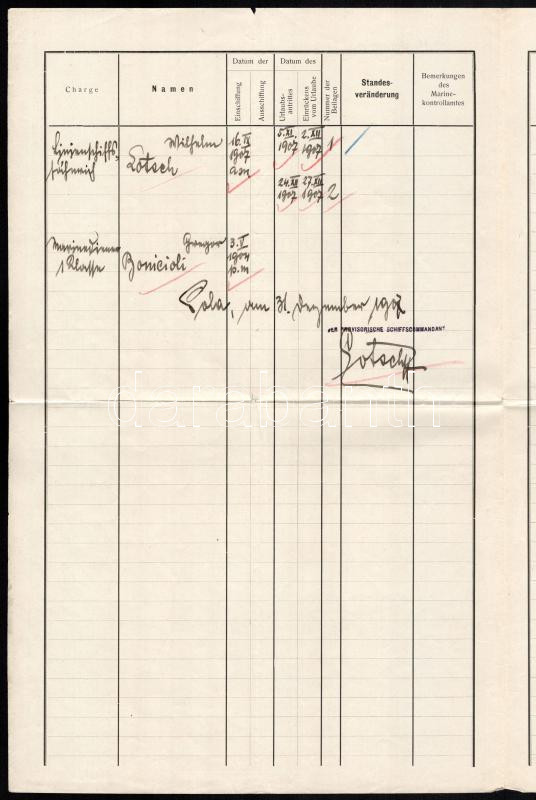 Charge
Namen
Datum der
Einschiffung
Ausschiffung
Datum des
Urlaubs-
antrittes
Einrückens
vom Urlaube
Nummer der
Beilagen
Standes-
veränderung
Bemerkungen
des
Marine-
kontrollamtes
Linienschiffs-
fähnrich
Wilhelm
Lotsch
16. IX
1907
a.m
5. XI.
1907
2. XII
1907
1
24. XII
1907
27. XII
1907
2
Marinediener
1 Klasse
Gregor
Bonicioli
3. V
1904
p.m
Pola, am 31. Dezember 1907
DER PROVISORISCHE SCHIFFSCOMMANDANT
Lotsch
darabanth